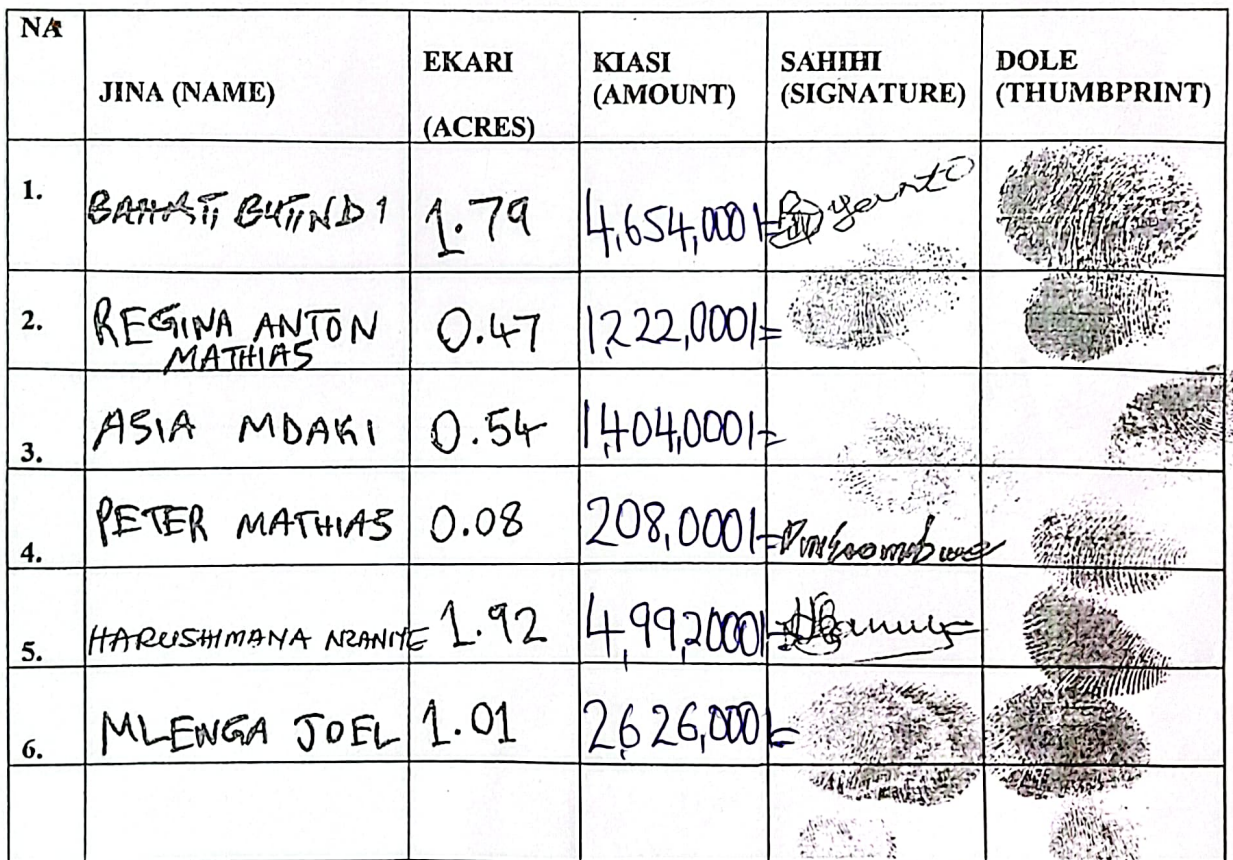 NA JINA (NAME) EKARI (ACRES) KIASI (AMOUNT) SAHIHI (SIGNATURE) DOLE (THUMBPRINT)
1. BAHATI 1.79 4,654,000/=
2. REGINA ANTON MATHIAS 0.47 1,222,000/=
3. ASIA MDAKI 0.54 1,404,000/=
4. PETER MATHIAS 0.08 208,000/=
5. HARUSHIMANA 1.92 4,992,000/=
6. MLENGA JOEL 1.01 2,626,000/=